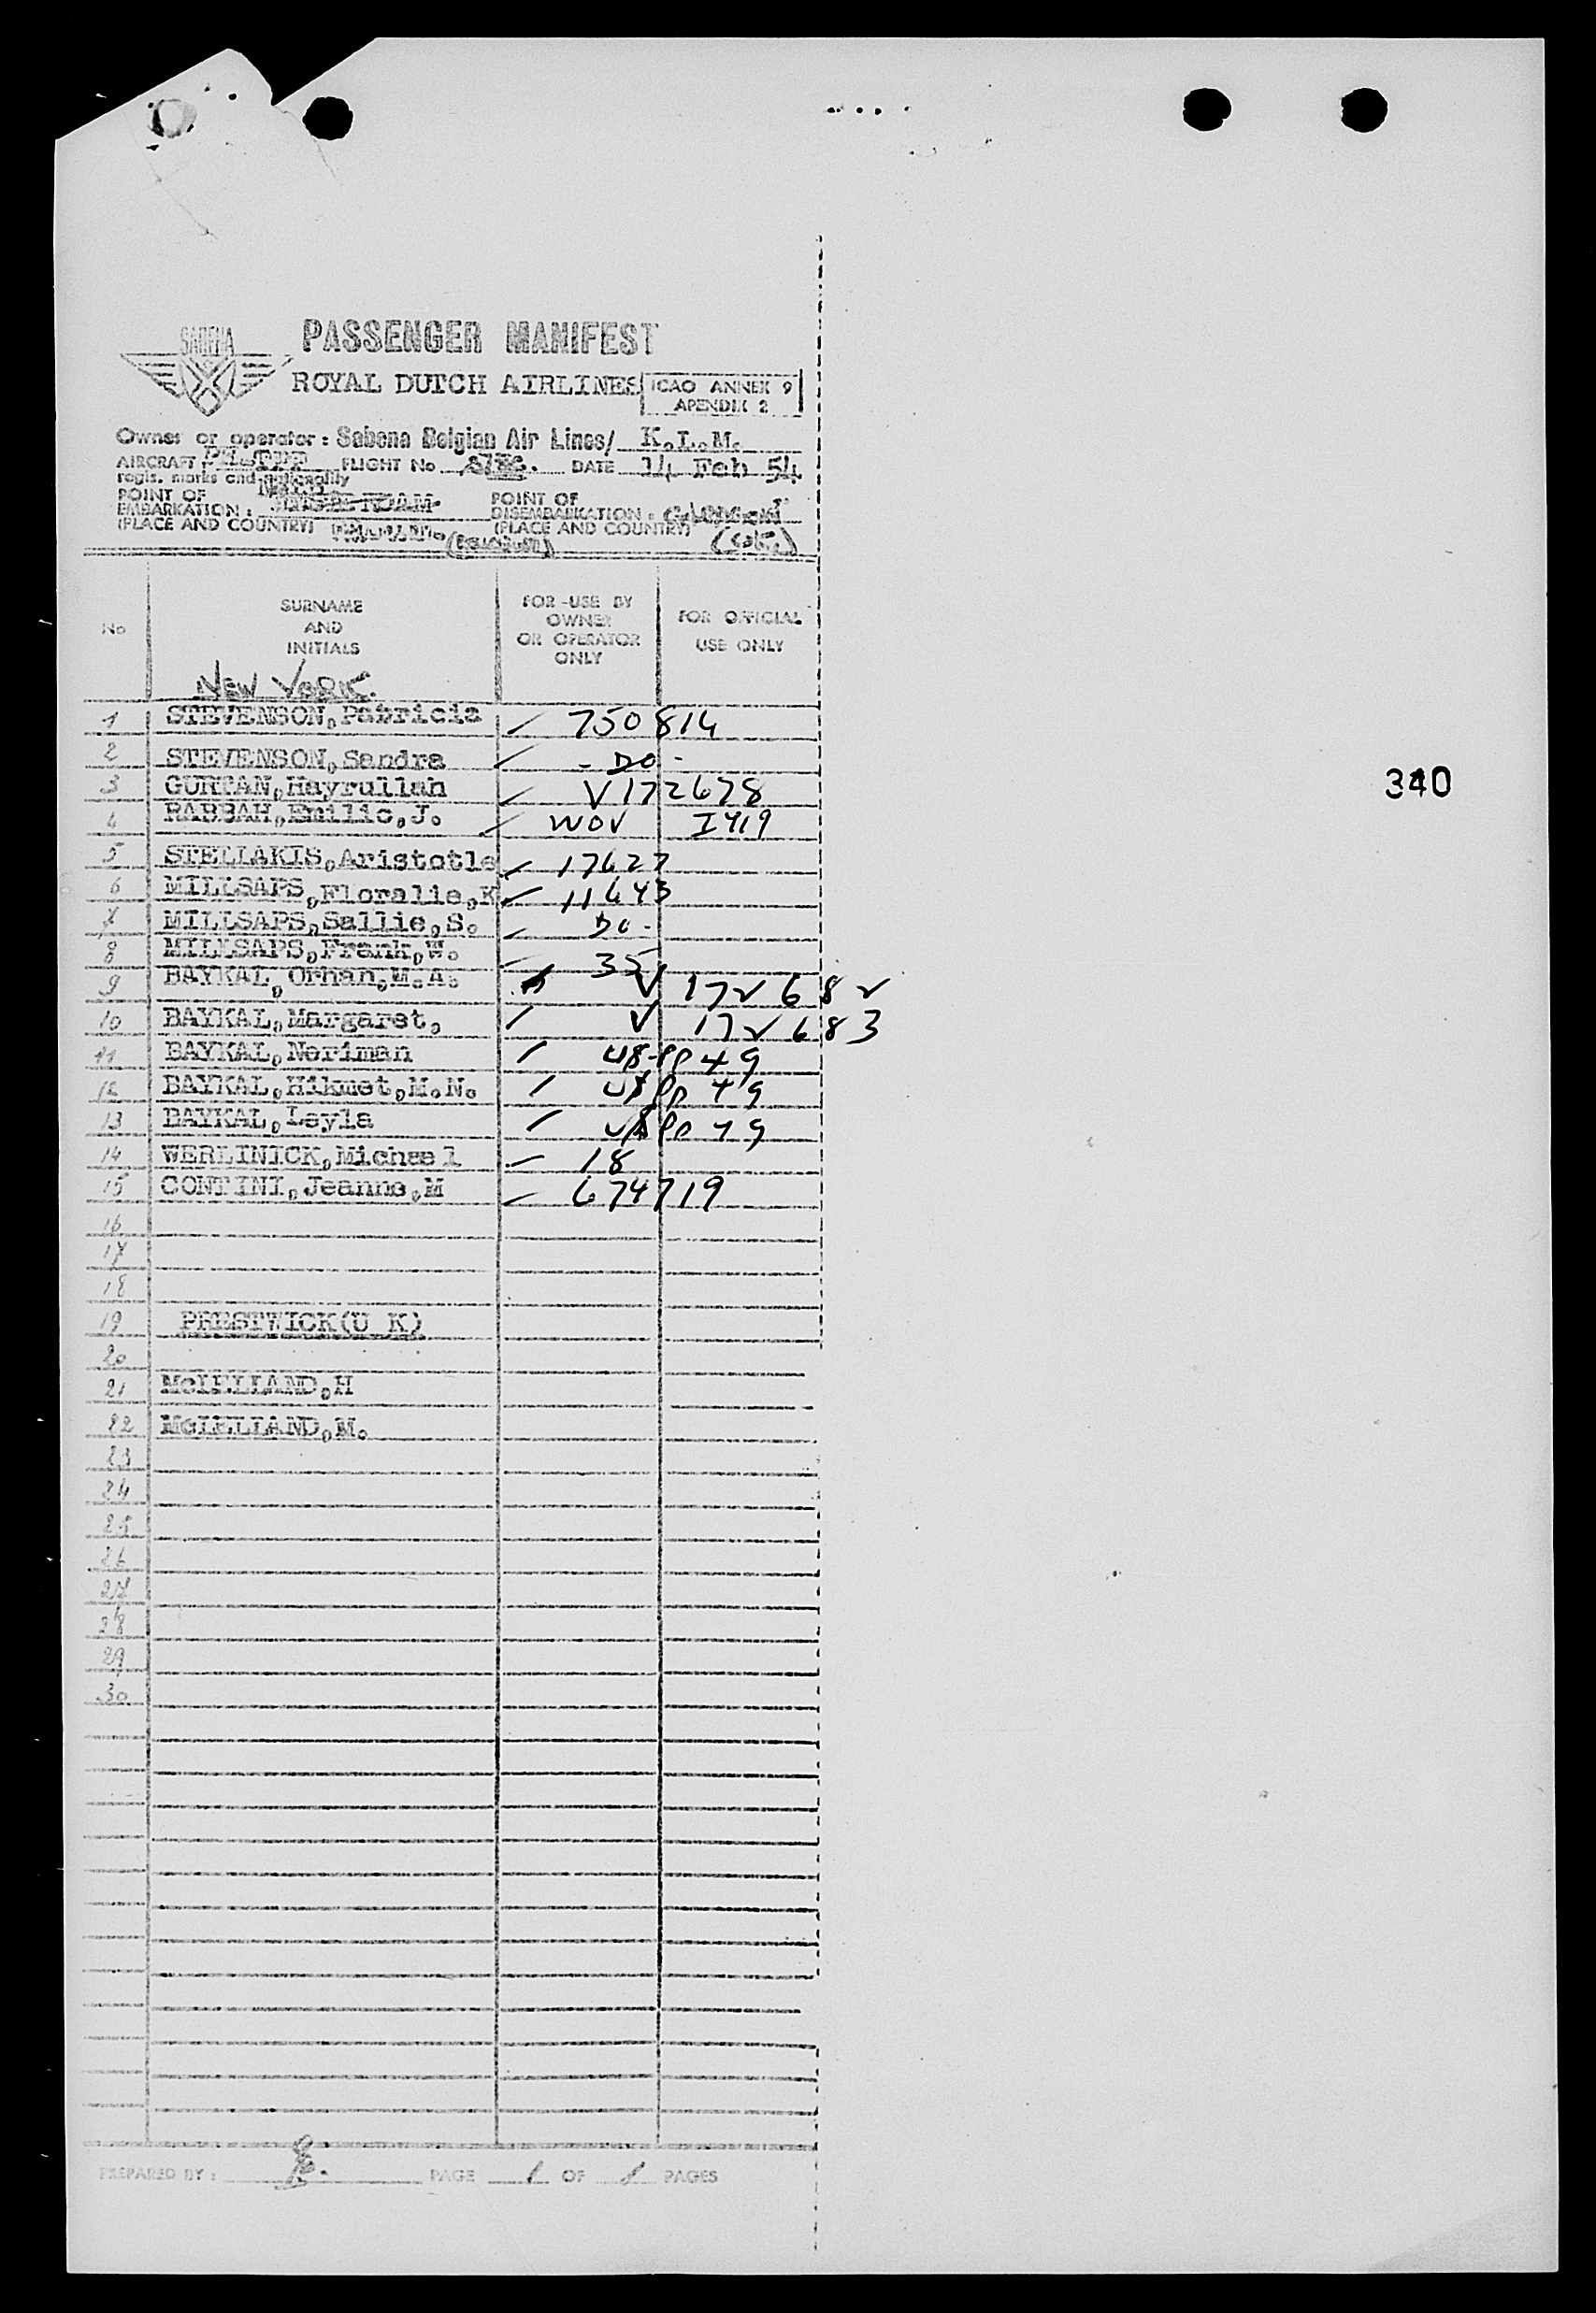 SABENA
PASSENGER MANIFEST
ROYAL DUTCH AIRLINES
ICAO ANNEX 9
APENDIX 2
Owner or operator: Sabena Belgian Air Lines/ K.L.M.
AIRCRAFT FLIGHT No DATE 14 Feb 54
regis. marks and nationality
POINT OF
EMBARKATION:
(PLACE AND COUNTRY)
POINT OF
DISEMBARKATION:
(PLACE AND COUNTRY)
No
SURNAME
AND
INITIALS
FOR-USE BY
OWNER
OR OPERATOR
ONLY
FOR OFFICIAL
USE ONLY
NEW YORK.
1 STEVENSON, Patricia 750814
2 STEVENSON, Sandra - DO -
3 GURTAN, Hayrullah V172678
340
4 RABBAH, Emilio, J. WOV I 419
5 STELLAKIS, Aristotle 17627
6 MILLSAPS, Floralie, K 11643
7 MILLSAPS, Sallie, S. DO -
8 MILLSAPS, Frank, W. 35
9 BAYKAL, Orhan, M. A. V 172682
10 BAYKAL, Margaret, V 172683
11 BAYKAL, Neriman US PP 49
12 BAYKAL, Hikmet, M. N. US PP 49
13 BAYKAL, Leyla US PP 49
14 WERLINICK, Michael 18
15 CONTINI, Jeanne, M 674719
16
17
18
19 PRESTWICK (U K)
20
21 McLELLAND, H
22 McLELLAND, M.
23
24
25
26
27
28
29
30
PREPARED BY: PAGE 1 OF 1 PAGES